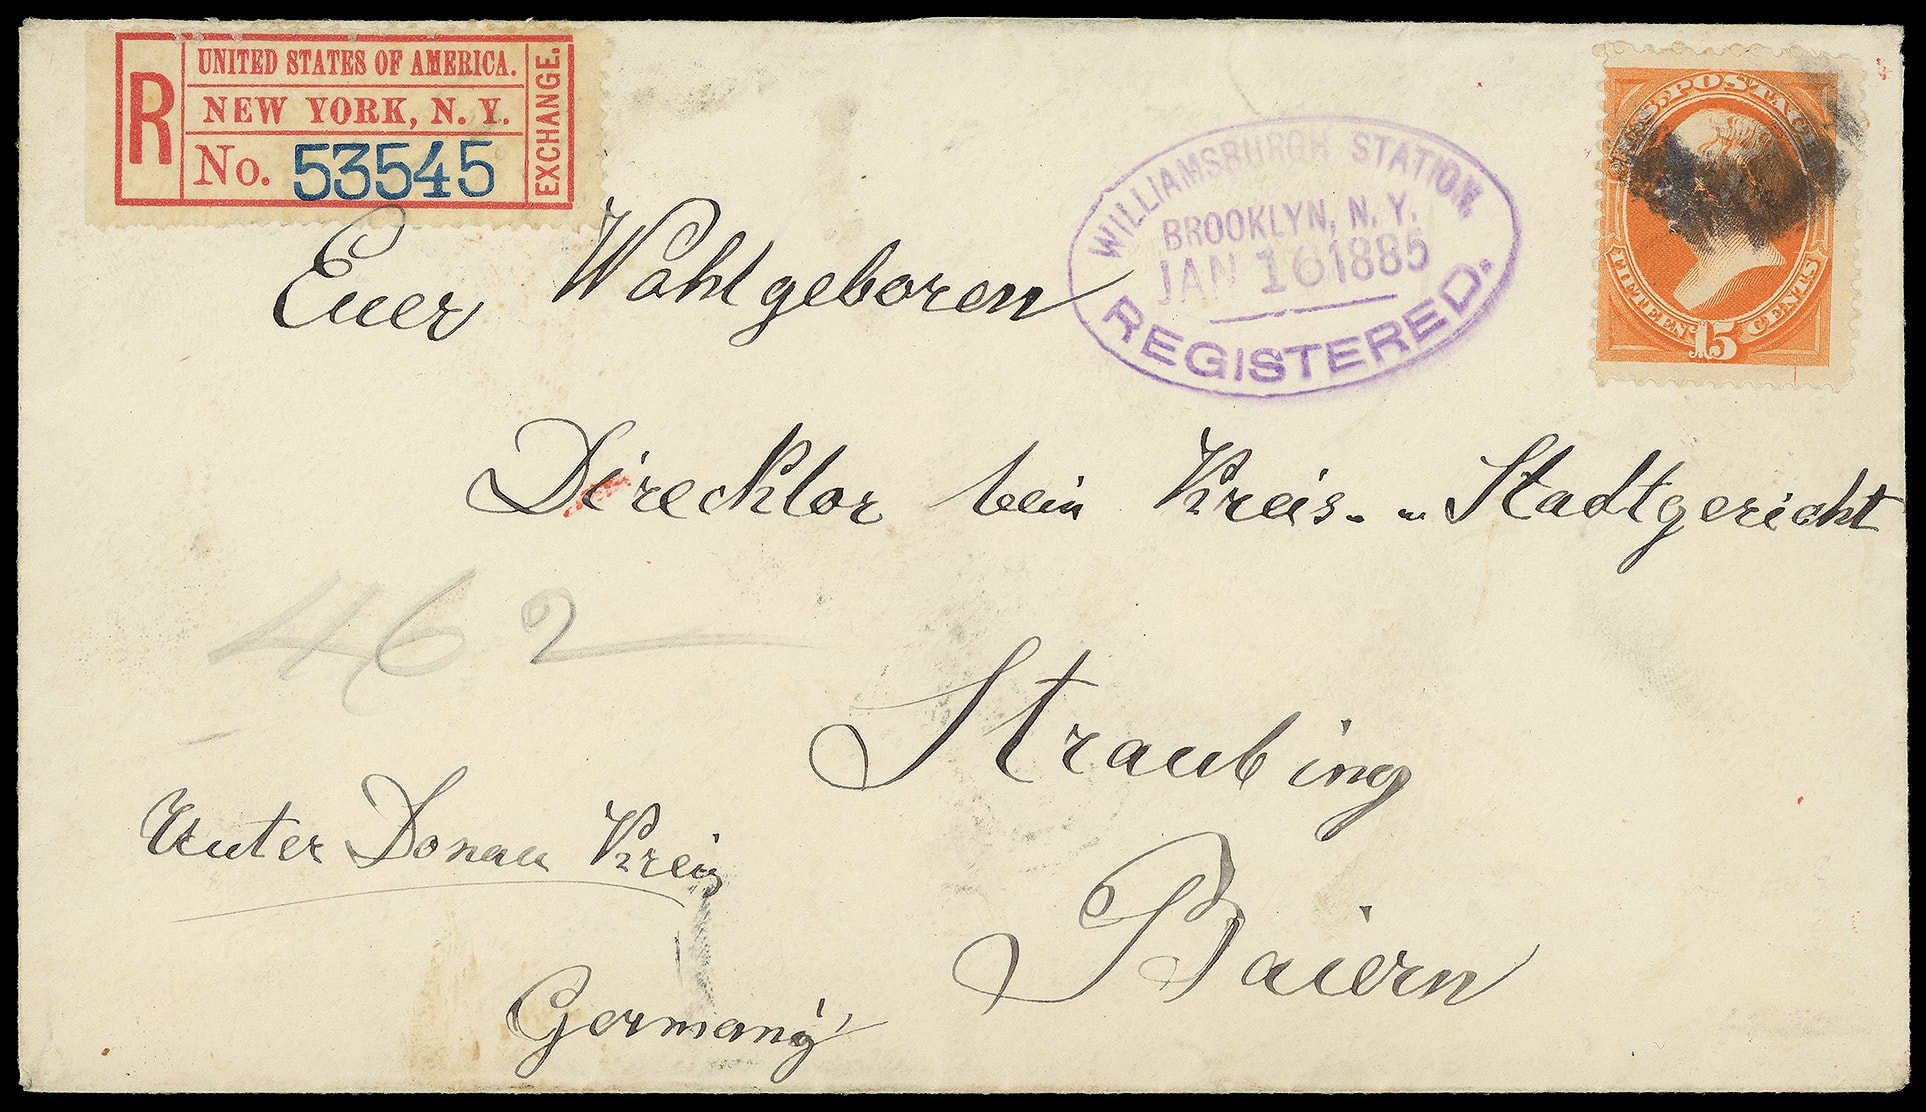 R
UNITED STATES OF AMERICA.
NEW YORK, N. Y.
No. 53545
EXCHANGE.
WILLIAMSBURGH STATION,
BROOKLYN, N. Y.
JAN 16 1885
REGISTERED.
U.S. POSTAGE
FIFTEEN 15 CENTS
Euer Wohlgeboren
Direcktor bein Kreis- u Stadtgericht
462
Straubing
Unter Donau Kreis
Baiern
Germany